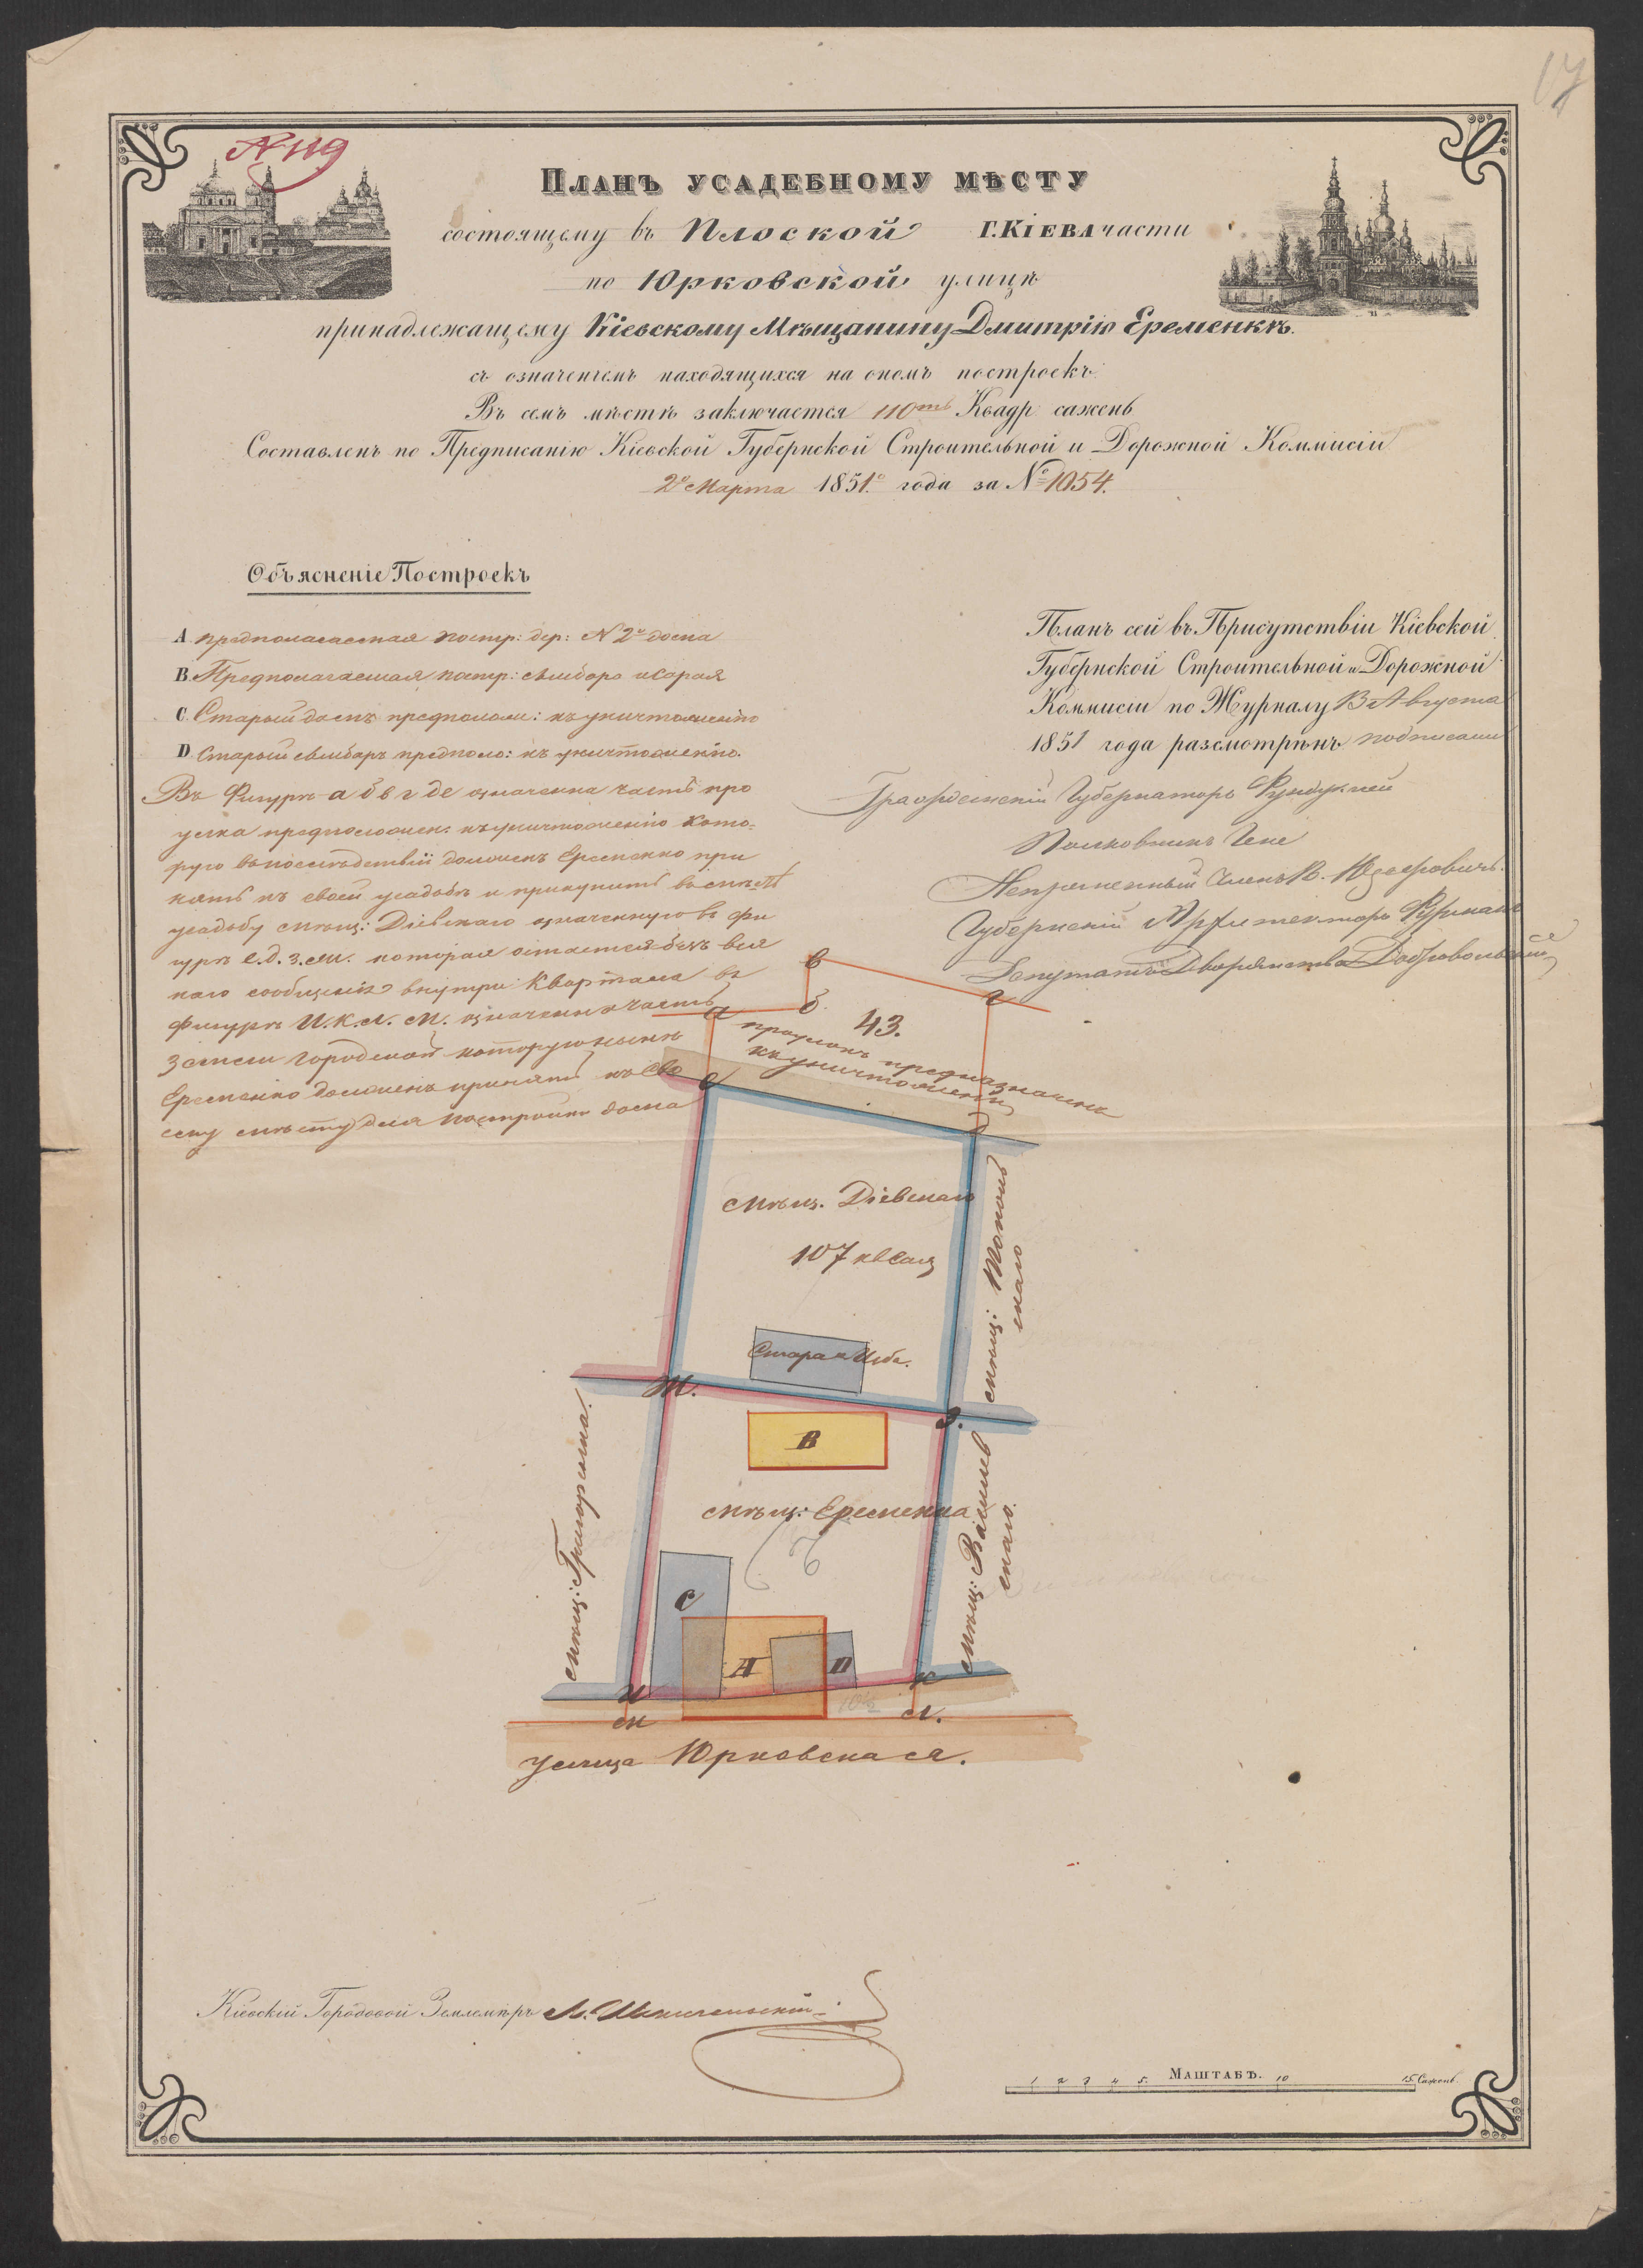 17
№ 119
Планъ усадебному мѣсту
состоящему въ Плоской Г. Кіева части
по Юрковской улицѣ
принадлежащему Кіевскому Мѣщанину Дмитрію Еременкѣ.
съ означеніемъ находящихся на ономъ построекъ.
Въ семъ мѣстѣ заключается 110ть Квадр сажень
Составленъ по Предписанію Кіевской Губернской Строительной и Дорожной Коммисіи
2го Марта 1851го года за № 1054.
Объясненіе Построекъ
А предполагаемая постр: дер: № 2й дома
В. Предполагаемая постр: Амбара и Сарая
С. Старый домъ предполож: къ уничтоженію
D Старый Амбаръ предполо: къ уничтоженію.
Въ Фигурѣ а б в г д е означенна часть про
улка предположен: къ уничтоженію кото=
рую въ послѣдствіи долженъ Еременко при
нять къ своей усадьбѣ и прикупить
усадьбу мѣщ: Діевскаго означенную въ фи
гурѣ е. д. з. ж. которая остается безъ вся
каго сообщенія внутри Квартала въ
фигурѣ И. К. Л. М. означенна часть
земли городской которую нынѣ
Еременко долженъ принять къ сво
ему мѣсту для постройки дома
Планъ сей въ Присутствіи Кіевской
Губернской Строительной и Дорожной
Комисіи по Журналу 13 Августа
1851 года разсмотрѣнъ подписали
Гражданскій Губернаторъ Фундуклей
Полковникъ Гене
Непремѣнный Членъ В. Юзефовичъ.
Губернскій Архитекторъ
Депутатъ Дворянства Добровольскій
в
г
а
б.
43.
проулокъ предназначенъ
къ уничтоженію
е
д
мѣщ. Діевскаго
107 кв саж
мѣщ: Тополь
скаго
Старая Изба.
Ж.
З.
В
мѣщ: Григоренка.
мѣщ: Еременка
мѣщ: Василев
скаго.
С
А
D
И
К
10½
М
Л.
Улица Юрковская.
Кіевскій Городовой Землемѣръ
1 2 3 4 5 Маштабъ. 10 15 Сажень